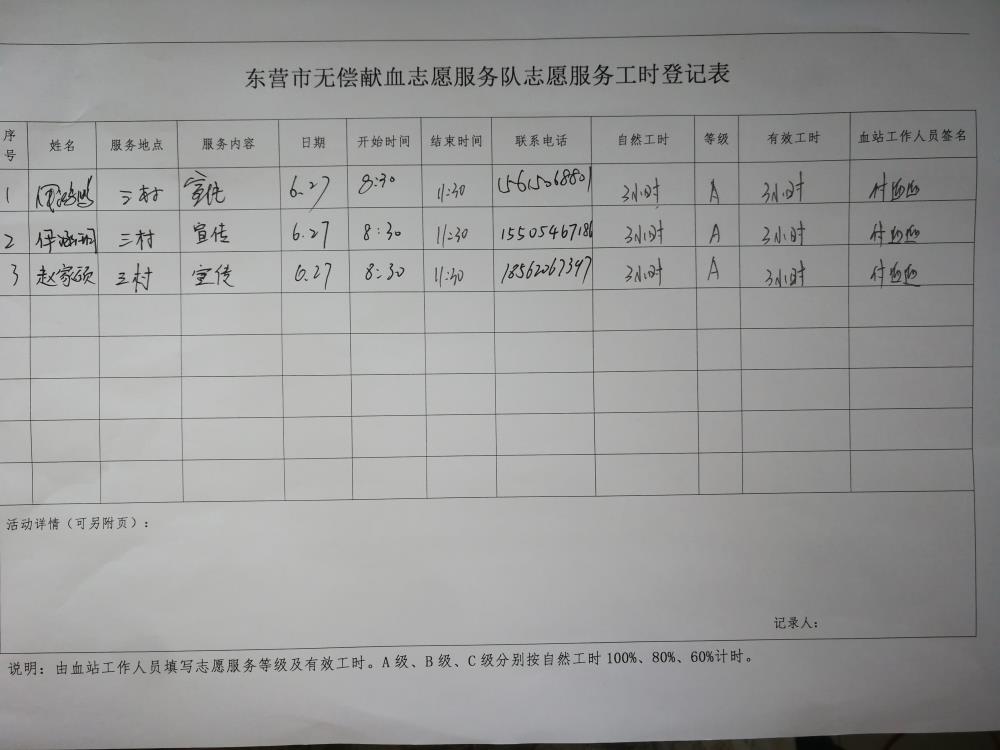 东营市无偿献血志愿服务队志愿服务工时登记表
序号 姓名 服务地点 服务内容 日期 开始时间 结束时间 联系电话 自然工时 等级 有效工时 血站工作人员签名
1 三村 宣传 6.27 8:30 11:30 15615068801 3小时 A 3小时
2 三村 宣传 6.27 8:30 11:30 15505467186 3小时 A 3小时
3 赵家硕 三村 宣传 6.27 8:30 11:30 18562067347 3小时 A 3小时
活动详情（可另附页）：
记录人：
说明：由血站工作人员填写志愿服务等级及有效工时。A级、B级、C级分别按自然工时100%、80%、60%计时。